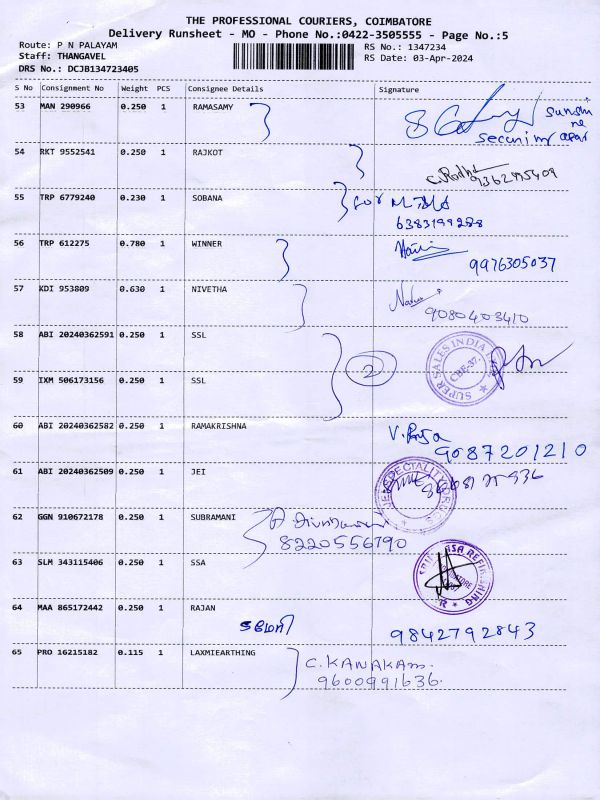 THE PROFESSIONAL COURIERS, COIMBATORE
Delivery Runsheet - MO - Phone No.:0422-3505555 - Page No.:5
Route: P N PALAYAM
RS No.: 1347234
Staff: THANGAVEL
RS Date: 03-Apr-2024
DRS No.: DCJB134723405
S No Consignment No Weight PCS Consignee Details Signature
53 MAN 290966 0.250 1 RAMASAMY
sunshi
ne
54 RKT 9552541 0.250 1 RAJKOT
55 TRP 6779240 0.230 1 SOBANA for
56 TRP 612275 0.780 1 WINNER
9976305037
57 KDI 953809 0.630 1 NIVETHA
9080403410
58 ABI 20240362591 0.250 1 SSL
2
SUPER SALES INDIA
CBE-37.
59 IXM 506173156 0.250 1 SSL
60 ABI 20240362582 0.250 1 RAMAKRISHNA
9087201210
61 ABI 20240362509 0.250 1 JEI
62 GGN 910672178 0.250 1 SUBRAMANI
8220556790
63 SLM 343115406 0.250 1 SSA
64 MAA 865172442 0.250 1 RAJAN
9842792843
65 PRO 16215182 0.115 1 LAXMIEARTHING
C. KANAKAM.
9600991636.